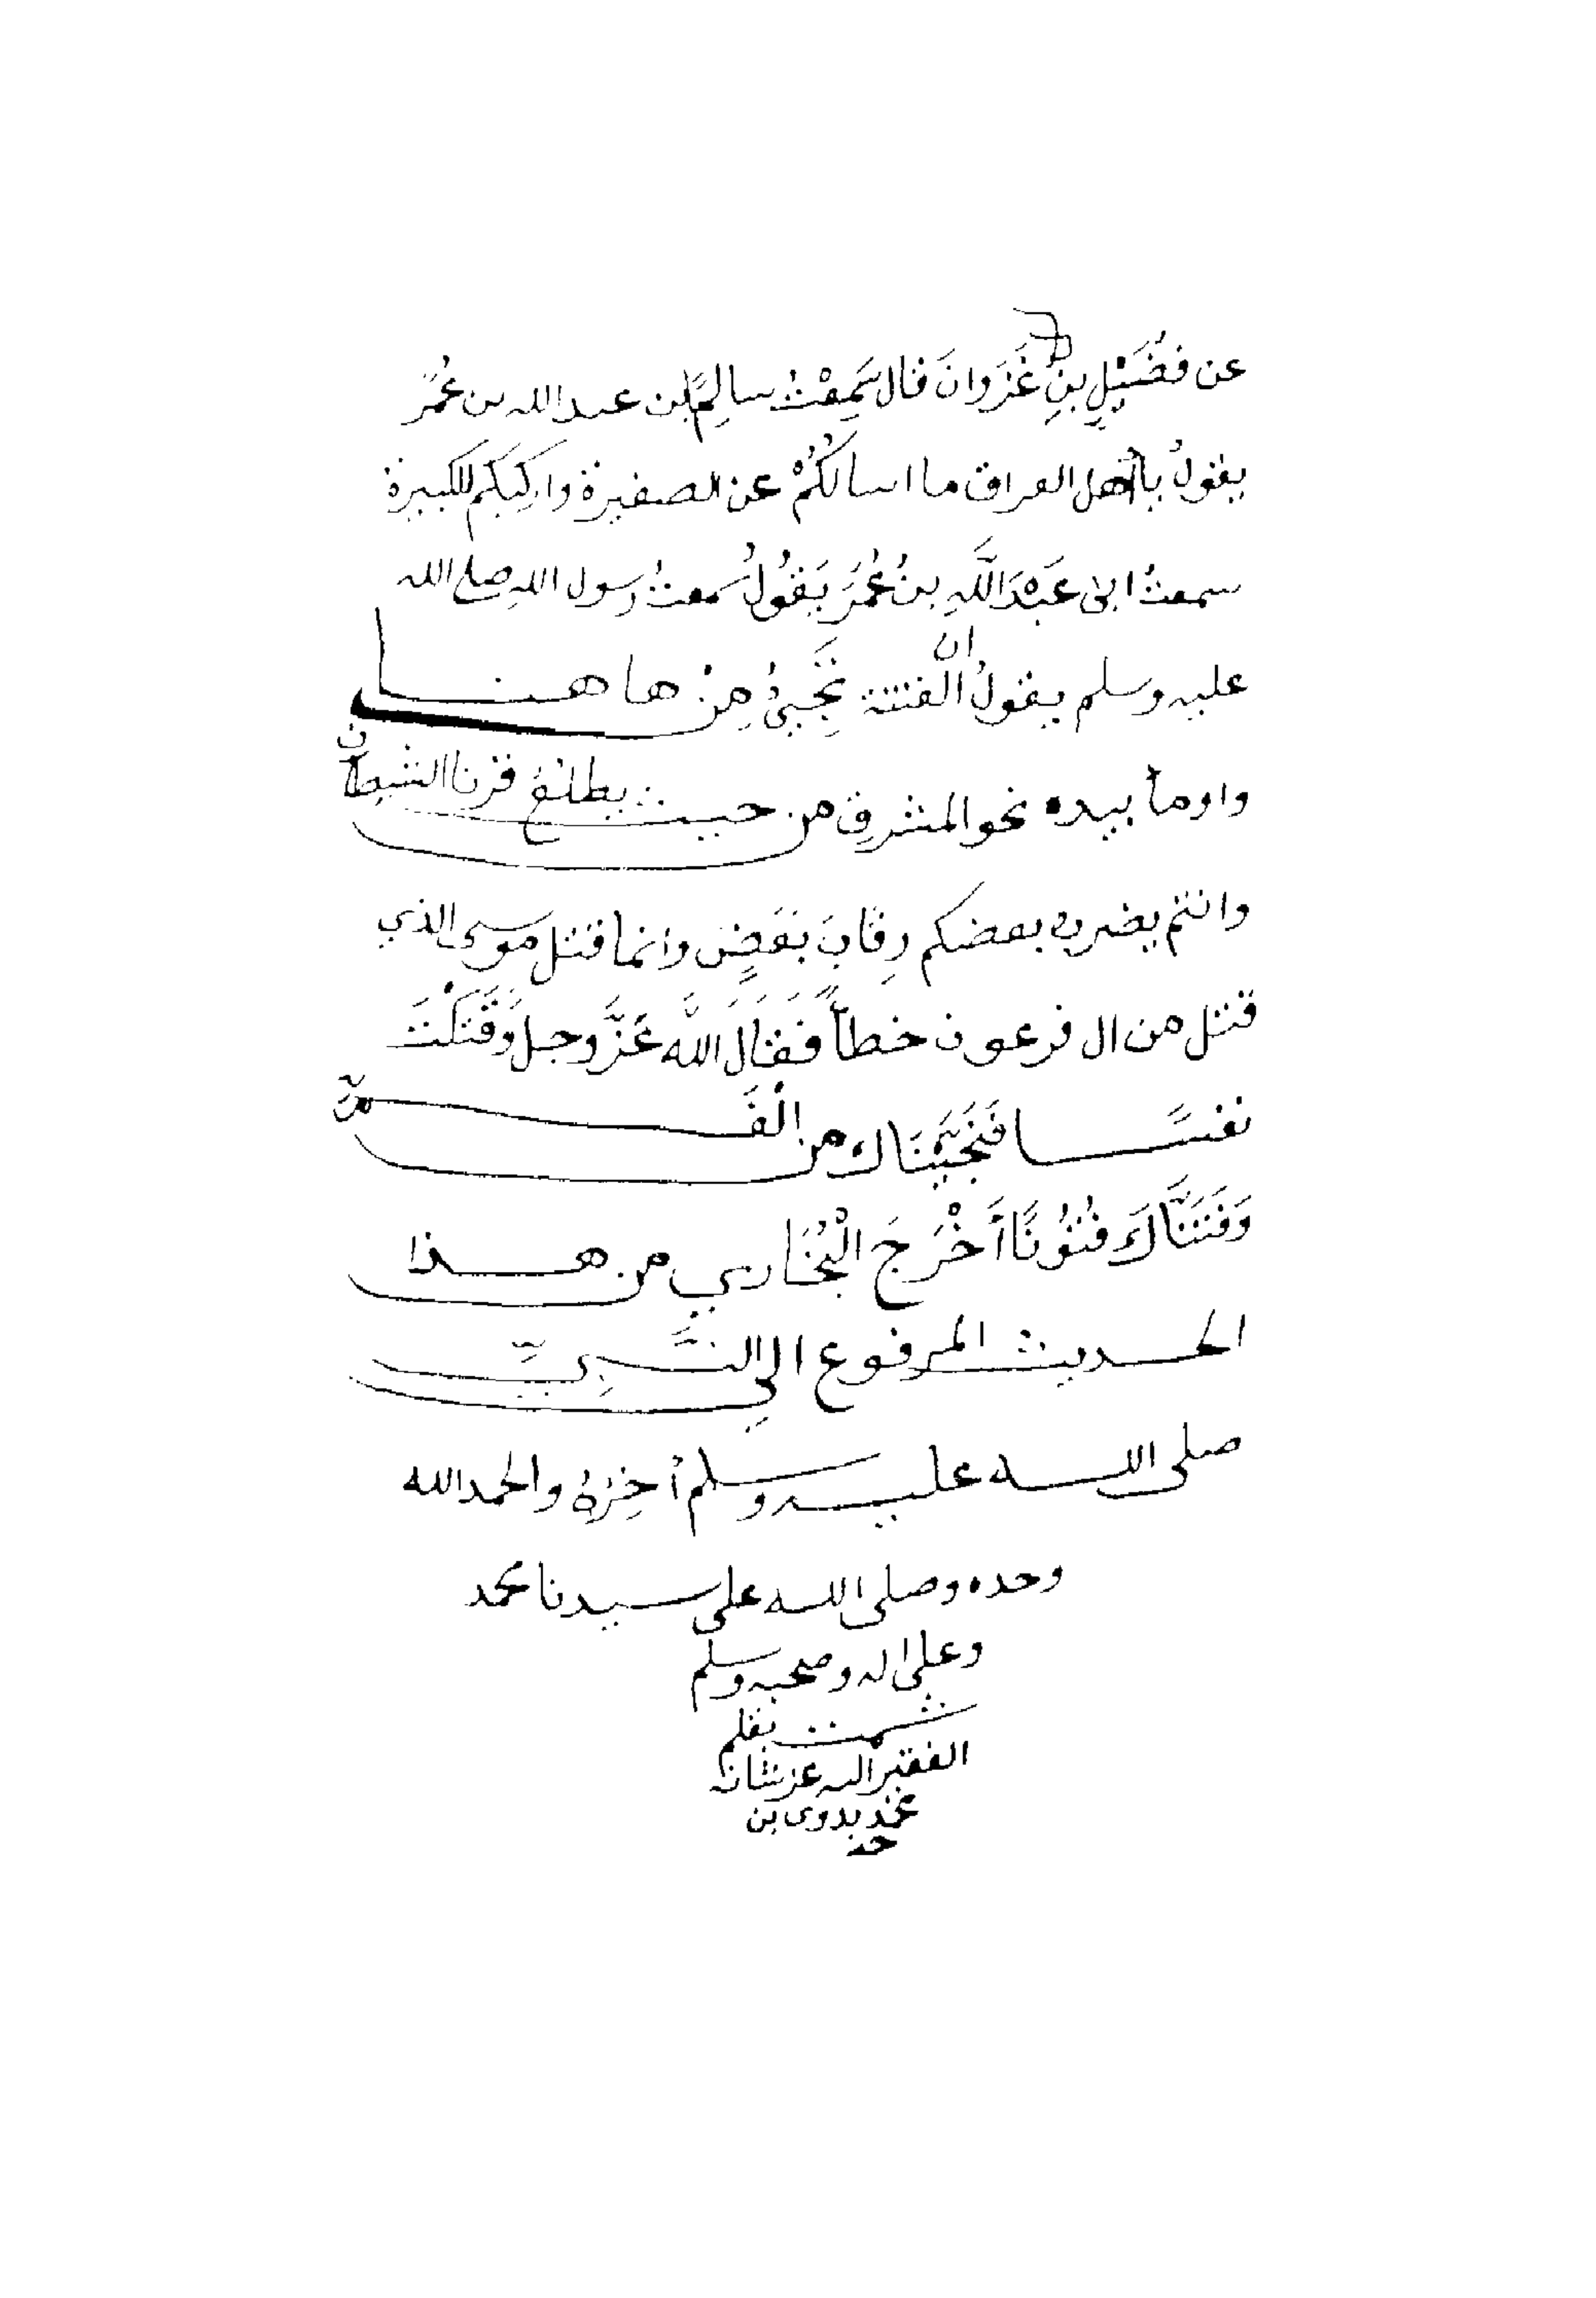 عن فُضَيْلٍ بنِ غَزَوانَ قال سَمِعْتُ سالِمَ بن عبد الله بن عُمَرَ
يقولُ يا أهل العراق ما اسالكُمْ عن الصغيرة واركبَكم للكبيرة
سمعتُ ابى عَبْدَ اللَّهِ بنُ عُمَرَ يَقُولُ سمعتُ رسول الله صلى الله
عليه وسلم يقولُ ان الفتنة تَجِيئُ مِنْ ها هنا
واومأ بيده نحو المشرق من حيث يطلعُ قرنا الشيطان
وانتم يضرب بعضكم رِقَابَ بَعَضٍ وانما قتل موسى الذي
قتل من ال فرعون خطأً فَقَالَ اللَّه عَزَّوجل وَقَتَلْتَ
نفسًا فَنَجَّيْنَاك من الْغَمِّ
وَفَتَنَّاكَ فُتُوُنًا أَخْرَجَ الْبُخَاري من هذا
الحديث المرفوع الى النَّبِيِّ
صلى الله عليه وسلم أخِرُهُ والحمدالله
وحده وصلى الله على سيدنا محمد
وعلى اله وصحبه وسلم
تمت بقلم
الفقير اليه عز شانه
محمد بدوى بن